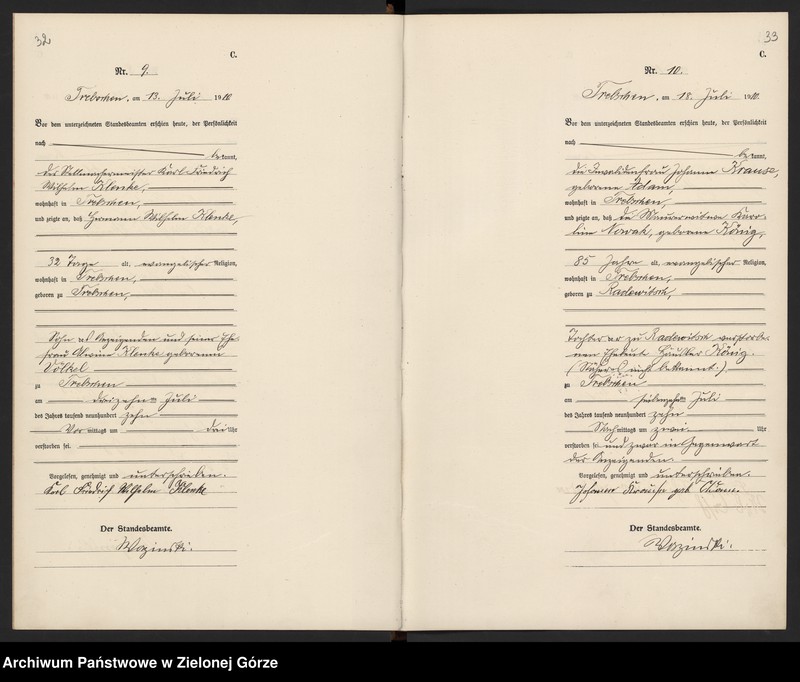 32
C.
Nr. 9.
Trebschen, am 13. Juli 1910
Vor dem unterzeichneten Standesbeamten erschien heute, der Persönlichkeit
nach
bekannt,
der Stellmachermeister Karl Friedrich
Wilhelm Klenke,
wohnhaft in Trebschen,
und zeigte an, daß Hermann Wilhelm Klenke,
32 Tage alt, evangelischer Religion,
wohnhaft in Trebschen,
geboren zu Trebschen,
Sohn des Anzeigenden und seiner Ehe-
frau Alwine Klenke geborenen
Völkel
zu Trebschen
am dreizehnten Juli
des Jahres tausend neunhundert zehn
Vormittags um drei Uhr
verstorben sei.
Vorgelesen, genehmigt und unterschrieben.
Karl Friedrich Wilhelm Klenke
Der Standesbeamte.
Wozinski.
33
C.
Nr. 10.
Trebschen, am 18. Juli 1910.
Vor dem unterzeichneten Standesbeamten erschien heute, der Persönlichkeit
nach
bekannt,
die Invalidenfrau Johanne Krause,
geborene Adam,
wohnhaft in Trebschen,
und zeigte an, daß die Maurerwitwe Karo-
line Nowak, geborene König,
85 Jahre alt, evangelischer Religion,
wohnhaft in Trebschen,
geboren zu Radewitsch,
Tochter der zu Radewitsch verstorbe-
nen Eheleute Häusler König.
(Näheres nicht bekannt.)
zu Trebschen
am siebenzehnten Juli
des Jahres tausend neunhundert zehn
Nachmittags um zwei Uhr
verstorben sei und zwar in Gegenwart
der Anzeigenden.
Vorgelesen, genehmigt und unterschrieben.
Johanne Krause geb Adam.
Der Standesbeamte.
Wozinski.
Archiwum Państwowe w Zielonej Górze